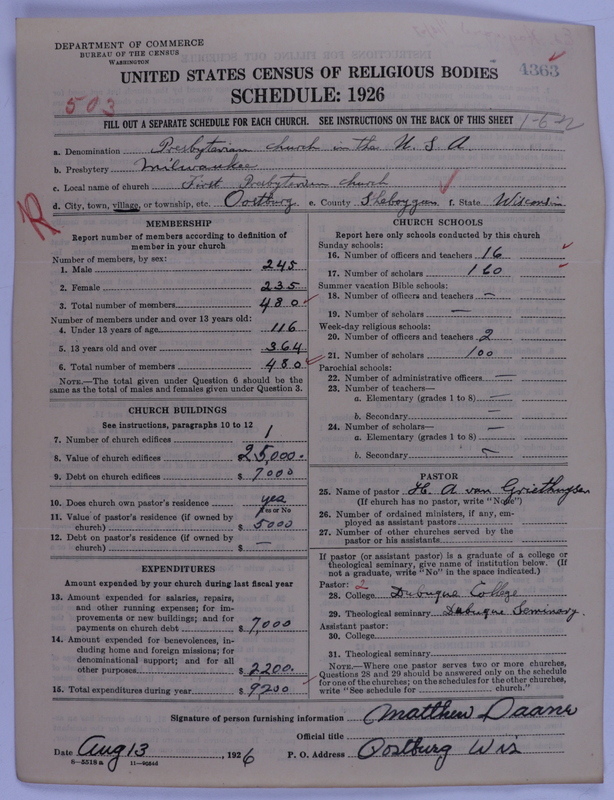 DEPARTMENT OF COMMERCE
BUREAU OF THE CENSUS
WASHINGTON
UNITED STATES CENSUS OF RELIGIOUS BODIES
4363
SCHEDULE: 1926
503
FILL OUT A SEPARATE SCHEDULE FOR EACH CHURCH. SEE INSTRUCTIONS ON THE BACK OF THIS SHEET
1-6-2
a. Denomination Presbyterian church in the U. S. A.
b. Presbytery Milwaukee
c. Local name of church First Presbyterian church
d. City, town, village, or township, etc. Oostburg e. County Sheboygan f. State Wisconsin
MEMBERSHIP
Report number of members according to definition of
member in your church
Number of members, by sex:
1. Male 245
2. Female 235
3. Total number of members 480
Number of members under and over 13 years old:
4. Under 13 years of age 116
5. 13 years old and over 364
6. Total number of members 480
NOTE.—The total given under Question 6 should be
same as the total of males and females given under Question 3.
CHURCH BUILDINGS
See instructions, paragraphs 10 to 12
7. Number of church edifices 1
8. Value of church edifices $ 25,000.
9. Debt on church edifices $ 7000
10. Does church own pastor's residence yea
Yes or No
11. Value of pastor's residence (if owned by
church) $ 5000
12. Debt on pastor's residence (if owned by
church) $ —
EXPENDITURES
Amount expended by your church during last fiscal year
13. Amount expended for salaries, repairs,
and other running expenses; for im-
provements or new buildings; and for
payments on church debt $ 7,000
14. Amount expended for benevolences, in-
cluding home and foreign missions; for
denominational support; and for all
other purposes $ 2200.
15. Total expenditures during year $ 9200
CHURCH SCHOOLS
Report here only schools conducted by this church
Sunday schools:
16. Number of officers and teachers 16
17. Number of scholars 160
Summer vacation Bible schools:
18. Number of officers and teachers —
19. Number of scholars —
Week-day religious schools:
20. Number of officers and teachers 2
21. Number of scholars 100
Parochial schools:
22. Number of administrative officers —
23. Number of teachers—
a. Elementary (grades 1 to 8) —
b. Secondary —
24. Number of scholars—
a. Elementary (grades 1 to 8) —
b. Secondary —
PASTOR
25. Name of pastor H. A. van Griethuysen
(If church has no pastor, write "None")
26. Number of ordained ministers, if any, em-
ployed as assistant pastors
27. Number of other churches served by the
pastor or his assistants
If pastor (or assistant pastor) is a graduate of a college or
theological seminary, give name of institution below. (If
not a graduate, write "No" in the space indicated.)
Pastor: 2
28. College Dubuque College
29. Theological seminary Dubuque Seminary.
Assistant pastor:
30. College
31. Theological seminary
NOTE.—Where one pastor serves two or more churches,
Questions 28 and 29 should be answered only on the schedule
for one of the churches; on the schedules for the other churches,
write "See schedule for church."
Signature of person furnishing information Matthew Daane
Official title
Date Aug 13, 1926 P. O. Address Oostburg Wis
8—5518 a